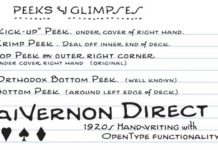 PEEKS & GLIMPSES
"KICK-UP" PEEK. UNDER COVER OF RIGHT HAND.
CRIMP PEEK. DEAL OFF INNER END OF DECK.
TOP PEEK ON OUTER RIGHT CORNER.
UNDER COVER RIGHT HAND (ORIGINAL)
ORTHODOX BOTTOM PEEK. (WELL KNOWN)
BOTTOM PEEK (AROUND LEFT EDGE OF DECK)
VERNON DIRECT
1920s HANDWRITING WITH
OPENTYPE FUNCTIONALITY